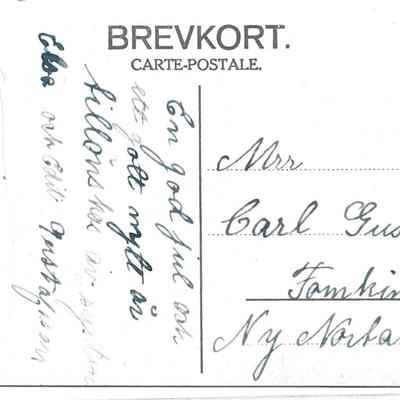 BREVKORT.
CARTE-POSTALE.
En god jul och
ett gott nytt år
tillönskas av
Elsa och Edit Gustafsson
Mrr
Carl Gus
Tomkin
Ny Norba